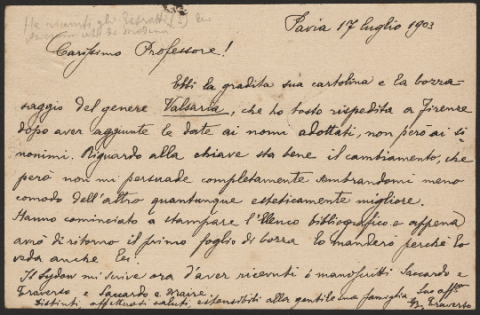 Ha ricevuto gli Estratti (2) e i
di Modena
Pavia 17 luglio 1903
Carissimo Professore!
Ebbi la gradita sua cartolina e la bozza-
saggio del genere Valsaria, che ho tosto rispedita a Firenze
dopo aver aggiunte le date ai nomi adottati, non però ai si-
nonimi. Riguardo alla chiave sta bene il cambiamento, che
però non mi persuade completamente sembrandomi meno
comodo dell'altro quantunque esteticamente migliore.
Hanno cominciato a stampare l'Elenco bibliografico e appena
avrò di ritorno il primo foglio di bozza lo manderò perchè lo
veda anche Lei.
Il Sydow mi scrive ora d'aver ricevuti i manoscritti Saccardo e
Traverso e Saccardo e Maire.
Distinti, affettuosi saluti, estensibili alla gentile sua famiglia
Suo aff.
G. B. Traverso